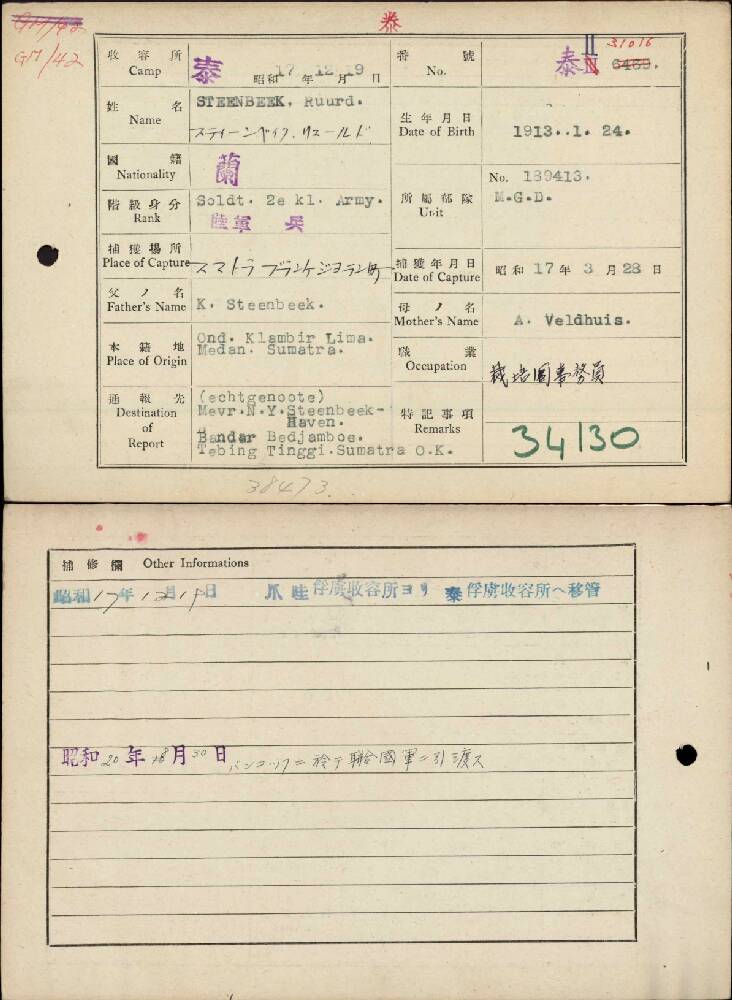 泰
GM/42
GM/42
收容所 Camp 泰 昭和17年12月19日
番號 No. 泰 II 31016 6469.
姓名 Name STEENBEEK, Ruurd.
スティーンベイク.リュールド
生年月日 Date of Birth 1913..1. 24.
國籍 Nationality 蘭
階級身分 Rank Soldt. 2e kl. Army.
陸軍 兵
所屬部隊 Unit No. 189413.
M.G.D.
捕獲場所 Place of Capture スマトラ ブランケジヨラン町
捕獲年月日 Date of Capture 昭和17年3月28日
父ノ名 Father's Name K. Steenbeek.
母ノ名 Mother's Name A. Veldhuis.
本籍地 Place of Origin Ond. Klambir Lima.
Medan. Sumatra.
職業 Occupation 栽培園事務員
通報先 Destination of Report (echtgenoote)
Mevr.N.Y.Steenbeek-
Haven.
Bandar Bedjamboe.
Tebing Tinggi.Sumatra O.K.
特記事項 Remarks 34130
38473.
補修欄 Other Informations
昭和17年12月19日 爪哇俘虜收容所ヨリ泰俘虜收容所ヘ移管
昭和20年8月30日 バンコックニ於テ聯合國軍ニ引渡ス